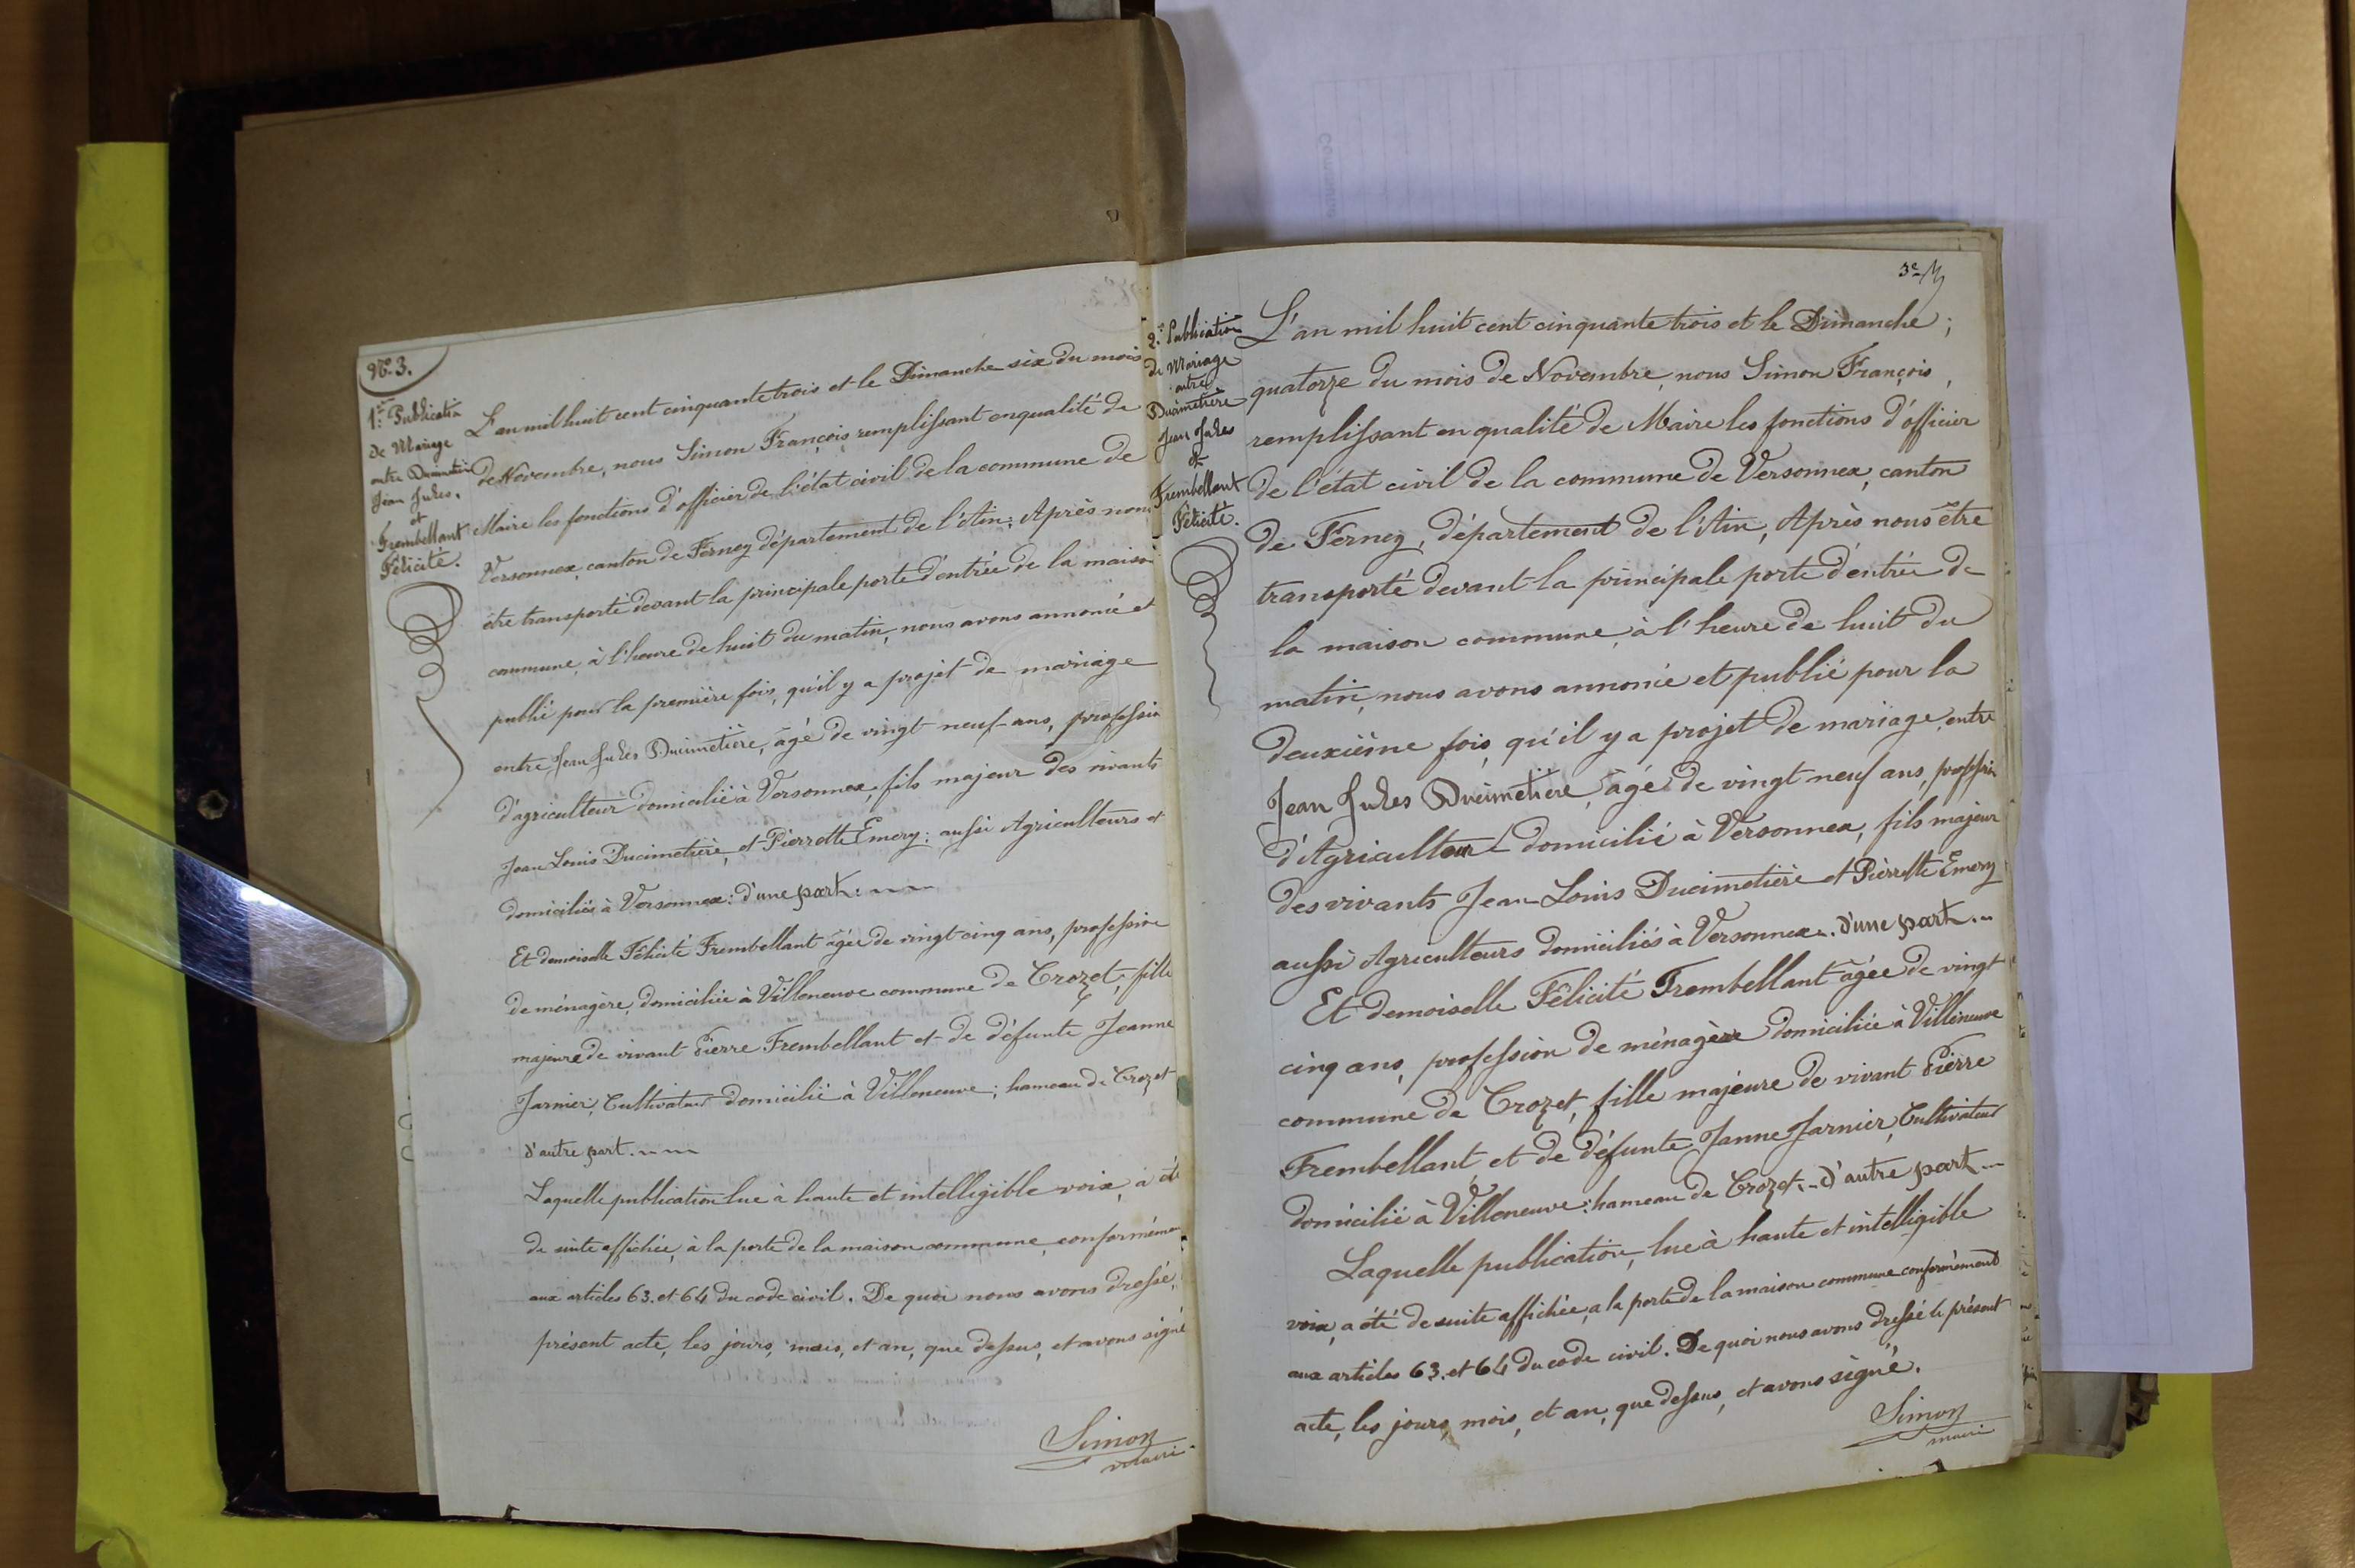 N.° 3.
1.ère Publication
de Mariage
entre Ducimetière
Jean Jules,
et
Frembellant
Félicité.
L'an mil huit cent cinquante trois et le Dimanche six du mois
de Novembre, nous Simon François remplissant en qualité de
Maire les fonctions d'officier de l'état civil de la commune de
Versonnex, canton de Ferney département de l'Ain; Après nous
être transporté devant la principale porte d'entrée de la maison
commune, à l'heure de huit du matin, nous avons annoncé et
publié pour la première fois, qu'il y a projet de mariage
entre Jean Jules Ducimetière, âgé de vingt neuf ans, profession
d'agriculteur domicilié à Versonnex, fils majeur des vivants
Jean Louis Ducimetière, et Pierrette Emery; aussi Agriculteurs et
domiciliés à Versonnex: d'une part.
Et demoiselle Félicité Frembellant âgée de vingt cinq ans, profession
de ménagère, domiciliée à Villeneuve commune de Crozet, fille
majeure de vivant Pierre Frembellant et de défunte Jeanne
Jarnier, Cultivateur domicilié à Villeneuve; hameau de Crozet
d'autre part.
Laquelle publication lue à haute et intelligible voix, a été
de suite affichée, à la porte de la maison commune, conformément
aux articles 63. et 64 du code civil. De quoi nous avons dressé,
présent acte, les jours, mois, et an, que dessus, et avons signé
Simon
maire
3e
2.e Publication
de Mariage
entre
Ducimetière
Jean Jules
et
Frembellant
Félicité.
L'an mil huit cent cinquante trois et le Dimanche;
quatorze du mois de Novembre, nous Simon François,
remplissant en qualité de Maire les fonctions d'officier
de l'état civil de la commune de Versonnex, canton
de Ferney, département de l'Ain, Après nous être
transporté devant la principale porte d'entrée de
la maison commune, à l'heure de huit du
matin, nous avons annoncé et publié pour la
deuxième fois, qu'il y a projet de mariage, entre
Jean Jules Ducimetière, âgé de vingt neuf ans, profession
d'Agriculteur domicilié à Versonnex, fils majeur
des vivants Jean-Louis Ducimetière et Pierrette Emery
aussi Agriculteurs domiciliés à Versonnex. d'une part.
Et demoiselle Félicité Frembellant âgée de vingt
cinq ans, profession de ménagère domiciliée à Villeneuve
commune de Crozet, fille majeure de vivant Pierre
Frembellant et de défunte Janne Jarnier, Cultivateur
domicilié à Villeneuve: hameau de Crozet. d'autre part
Laquelle publication, lue à haute et intelligible
voix, a été de suite affichée, a la porte de la maison commune conformément
aux articles 63. et 64 du code civil. De quoi nous avons dressé le présent
acte, les jours, mois, et an, que dessus, et avons signé.
Simon
maire